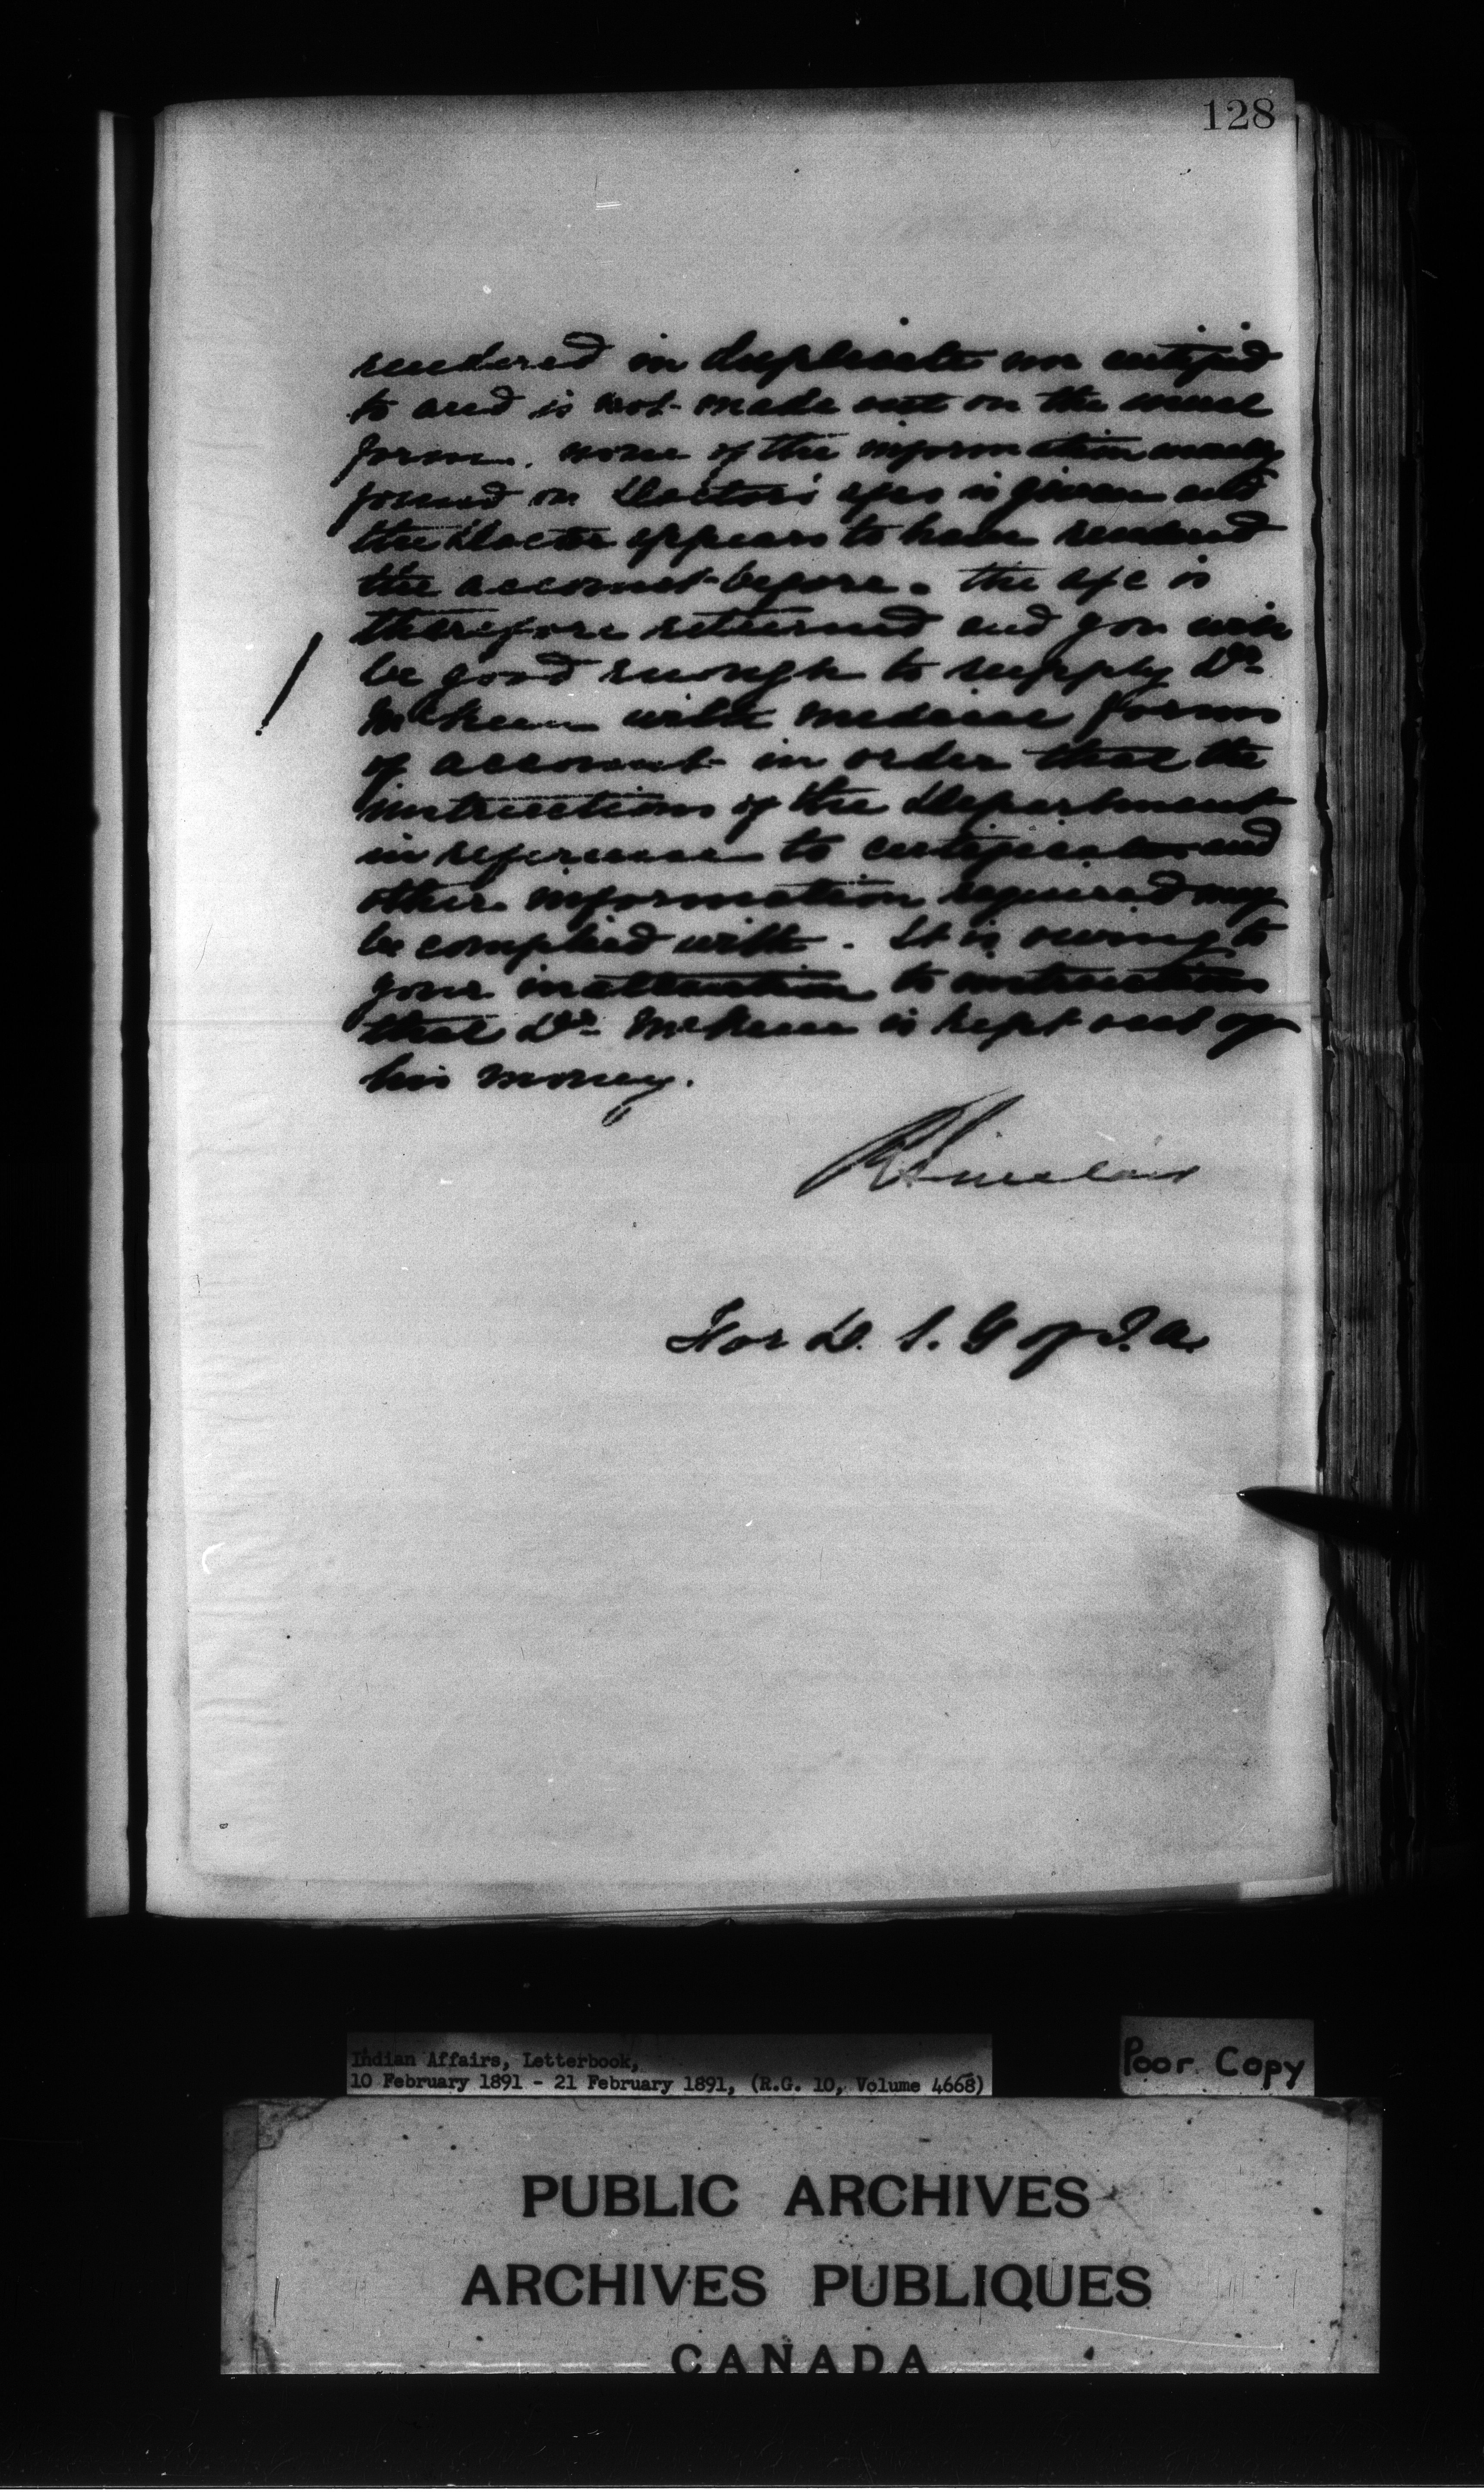 128
rendered in duplicate nor certified
to and is not made out on the usual
form. none of the information usually
found on Doctors' a/cs is given and
the Doctor appears to have rendered
the account before. The a/c is
therefore returned and you will
be good enough to supply Dr
McKeen with medical forms
of account in order that the
instructions of the Department
in reference to certificates and
other information required may
be complied with. It is owing to
your inattention to instructions
that Dr McKeen is kept out of
his money.
R Sinclair
For D. S. G of I. A.
Indian Affairs, Letterbook,
10 February 1891 - 21 February 1891, (R.G. 10, Volume 4668)
Poor Copy
PUBLIC ARCHIVES
ARCHIVES PUBLIQUES
CANADA